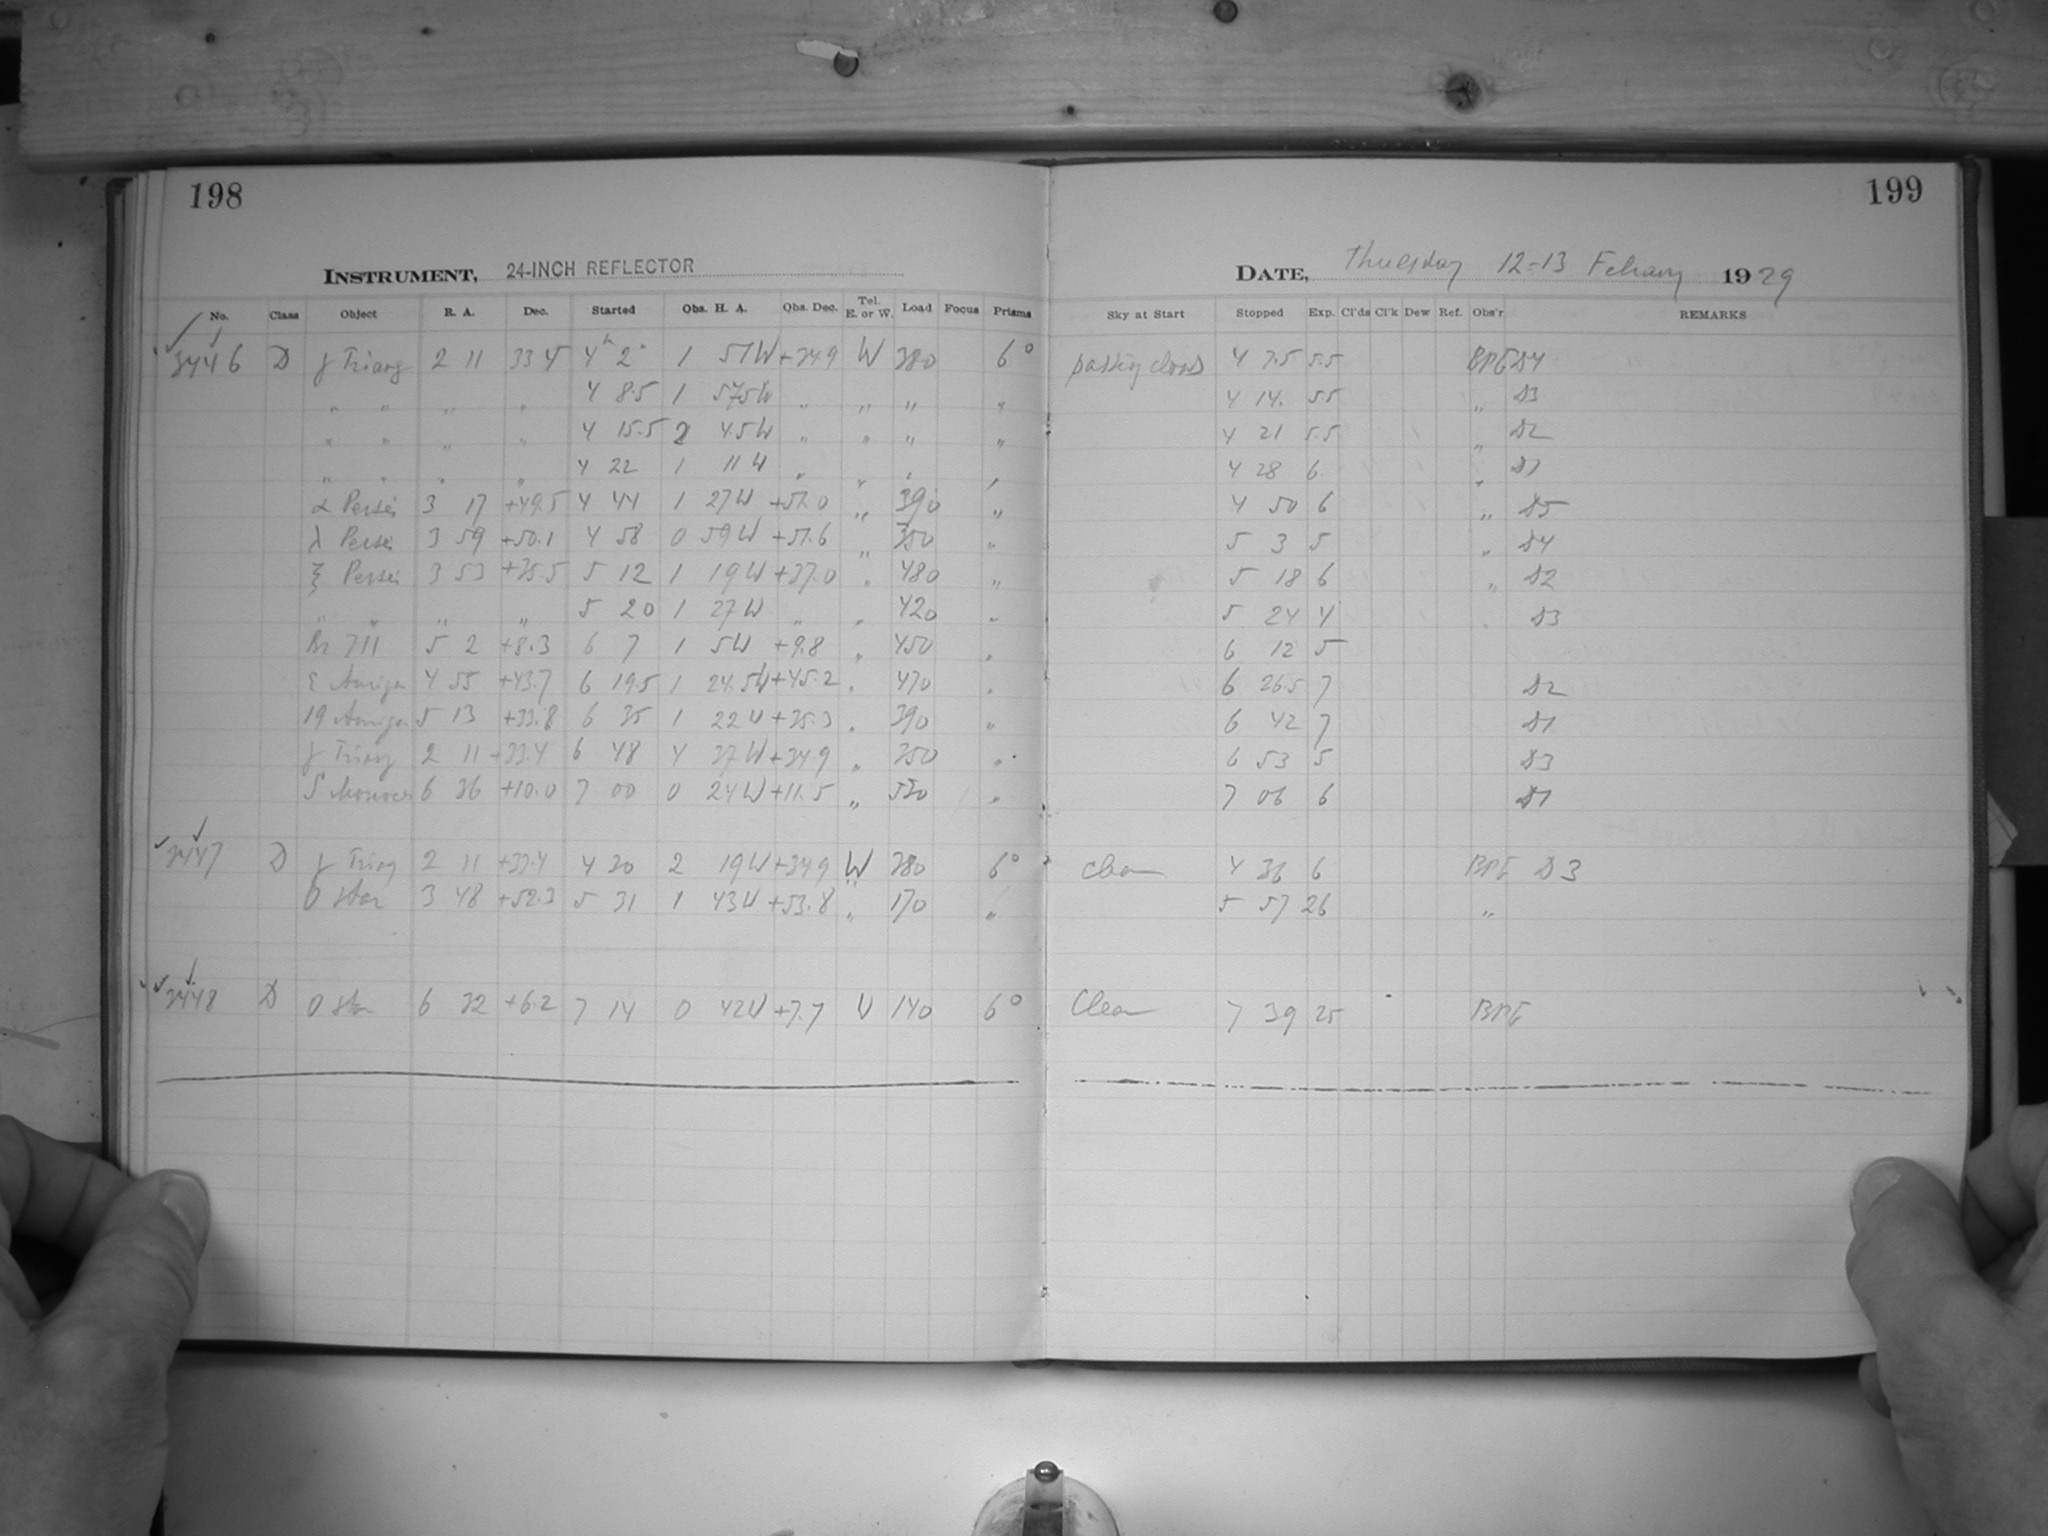 198
199
INSTRUMENT, 24-INCH REFLECTOR
DATE, Thuesday 12-13 1929
No. Class Object R. A. Dec. Started Obs. H. A. Obs. Dec. Tel. E. or W. Load Focus Prisms Sky at Start Stopped Exp. Cl'ds Cl'k Dew Ref. Obs'r REMARKS
3446 D γ Triang 2 11 33 4 4ʰ 2 1 51W +34.9 W 380 6° passing clouds 4 7.5 5.5 BPG D4
" " " " 4 8.5 1 57.5W " " " " 4 14. 5.5 " D3
" " " " 4 15.5 2 4.5W " " " " 4 21 5.5 " D2
" " " " 4 22 1 11W " " " " 4 28 6 " D1
α Persei 3 17 +49.5 4 44 1 27W +51.0 " 390 " 4 50 6 " D5
λ Persei 3 59 +50.1 4 58 0 59W +51.6 " 350 " 5 3 5 " D4
ξ Persei 3 53 +35.5 5 12 1 19W +37.0 " 480 " 5 18 6 " D2
" " " " 5 20 1 27W " " 420 " 5 24 4 " D3
Br 711 5 2 +8.3 6 7 1 5W +9.8 " 450 " 6 12 5
ε Auriga 4 55 +43.7 6 19.5 1 24.5W +45.2 " 470 " 6 26.5 7 D2
19 Auriga 5 13 +33.8 6 35 1 22W +35.3 " 390 " 6 42 7 D1
γ Triang 2 11 +33.4 6 48 4 37W +34.9 " 350 " 6 53 5 D3
S Monocer 6 36 +10.0 7 00 0 24W +11.5 " 520 " 7 06 6 D1
3447 D γ Triang 2 11 +33.4 4 30 2 19W +34.9 W 380 6° clear 4 36 6 BPG D3
O star 3 48 +52.3 5 31 1 43W +53.8 " 170 " 5 57 26 "
3448 D O star 6 32 +6.2 7 14 0 42W +7.7 W 140 6° Clear 7 39 25 BPG